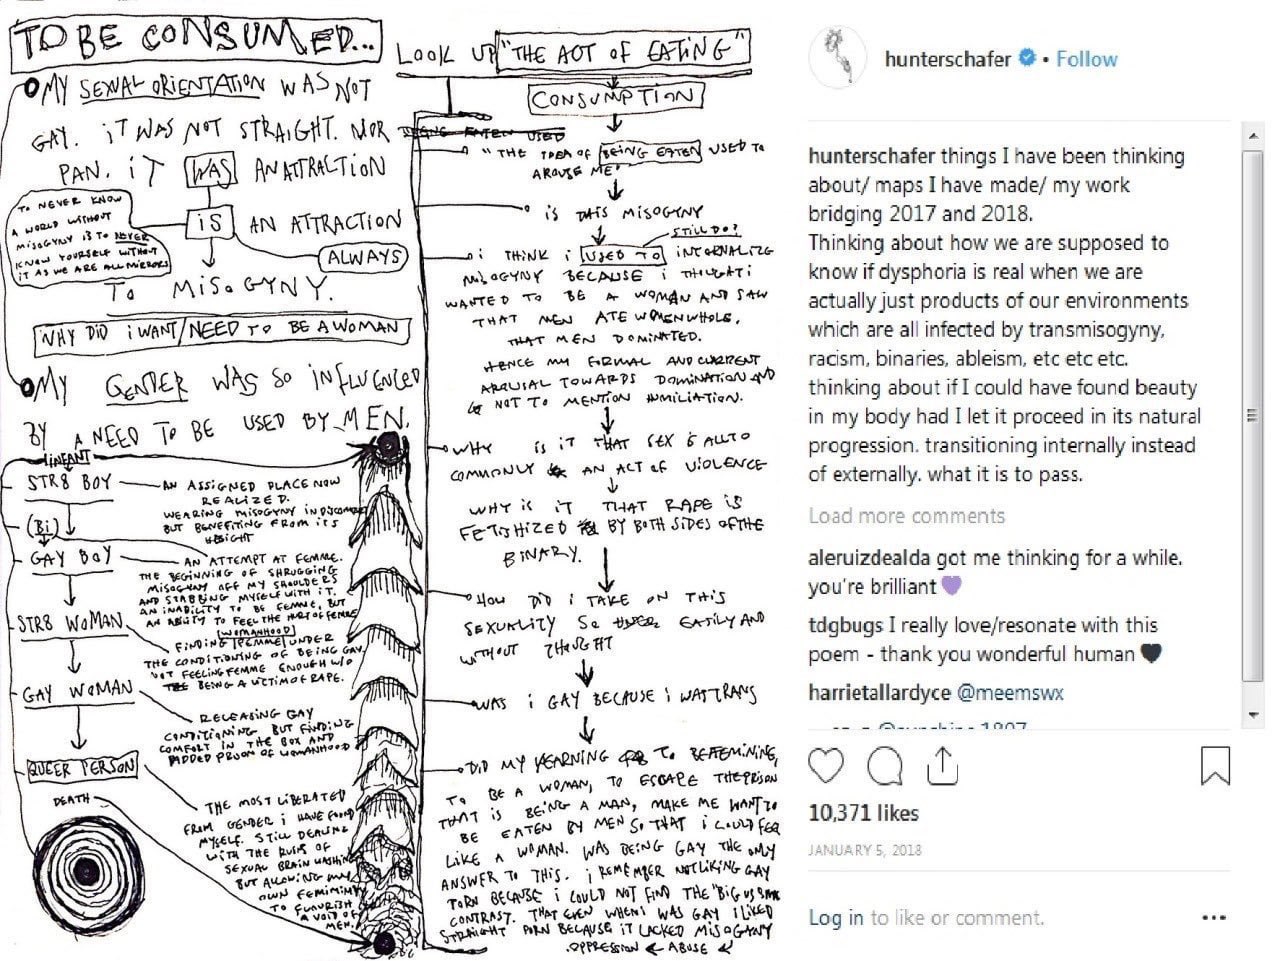 TO BE CONSUMED...
MY SEXUAL ORIENTATION WAS NOT
GAY. iT WAS NOT STRAiGHT. NOR
PAN. iT WAS AN ATTRACTION
TO NEVER KNOW
A WORLD WITHOUT
MISOGYNY IS TO NEVER
KNOW YOURSELF WITHOUT
IT AS WE ARE ALL MIRRORS
iS AN ATTRACTION
ALWAYS
TO MiSOGYNY.
WHY DID i WANT/NEED TO BE A WOMAN
MY GENDER WAS SO iNFLUENCED
BY A NEED TO BE USED BY MEN.
INFANT
STR8 BOY
AN ASSIGNED PLACE NOW
REALIZED.
WEARING MISOGYNY IN DISCOMFORT
BUT BENEFITING FROM ITS
(Bi)
GAY BOY
AN ATTEMPT AT FEMME.
THE BEGINNING OF SHRUGGING
MISOGYNY OFF MY SHOULDERS
AND STABBING MYSELF WITH IT.
AN INABILITY TO BE FEMME, BUT
AN ABILITY TO FEEL THE HURT OF FEMME
STR8 WOMAN
[WOMANHOOD]
FINDING FEMME UNDER
THE CONDITIONING OF BEING GAY
NOT FEELING FEMME ENOUGH W/O
BEING A VICTIM OF RAPE.
GAY WOMAN
RELEASING GAY
CONDITIONING BUT FINDING
COMFORT IN THE BOX AND
ADDED PROOF OF WOMANHOOD
QUEER PERSON
THE MOST LIBERATED
FROM GENDER i HAVE FOUND
MYSELF. STILL DEALING
WITH THE RUINS OF
SEXUAL BRAIN WASHING
BUT ALLOWING MY
OWN FEMININITY
TO FLOURISH
A VOID OF
MEN.
DEATH
LOOK UP "THE ACT OF EATING"
CONSUMPTION
BEING EATEN USED
"THE IDEA OF BEING EATEN USED TO
AROUSE ME"
iS THIS MISOGYNY
STILL DO?
i THINK i USED TO INTERNALIZE
MISOGYNY BECAUSE i THOUGHT i
WANTED TO BE A WOMAN AND SAW
THAT MEN ATE WOMEN WHOLE.
THAT MEN DOMINATED.
HENCE MY FORMAL AND CURRENT
AROUSAL TOWARDS DOMINATION AND
NOT TO MENTION HUMILIATION.
WHY IS IT THAT SEX IS ALL TO
COMMONLY AN ACT OF VIOLENCE
WHY IS IT THAT RAPE IS
FETISHIZED BY BOTH SIDES OF THE
BINARY.
HOW DID i TAKE ON THIS
SEXUALITY SO EASILY AND
WITHOUT THOUGHT
WAS i GAY BECAUSE i WAS TRANS
DID MY YEARNING TO BE FEMININE,
TO BE A WOMAN, TO ESCAPE THE PRISON
THAT IS BEING A MAN, MAKE ME WANT TO
BE EATEN BY MEN SO THAT i COULD FEEL
LIKE A WOMAN. WAS BEING GAY THE ONLY
ANSWER TO THIS. i REMEMBER NOT LIKING GAY
PORN BECAUSE i COULD NOT FIND THE "BIG VS SMALL
CONTRAST. THAT EVEN WHEN i WAS GAY I LIKED
STRAIGHT PORN BECAUSE IT LACKED MISOGYNY
OPPRESSION ABUSE
hunterschafer • Follow
hunterschafer things I have been thinking
about/ maps I have made/ my work
bridging 2017 and 2018.
Thinking about how we are supposed to
know if dysphoria is real when we are
actually just products of our environments
which are all infected by transmisogyny,
racism, binaries, ableism, etc etc etc.
thinking about if I could have found beauty
in my body had I let it proceed in its natural
progression. transitioning internally instead
of externally. what it is to pass.
Load more comments
aleruizdealda got me thinking for a while.
you're brilliant 💜
tdgbugs I really love/resonate with this
poem - thank you wonderful human 🖤
harrietallardyce @meemswx
10,371 likes
JANUARY 5, 2018
Log in to like or comment.